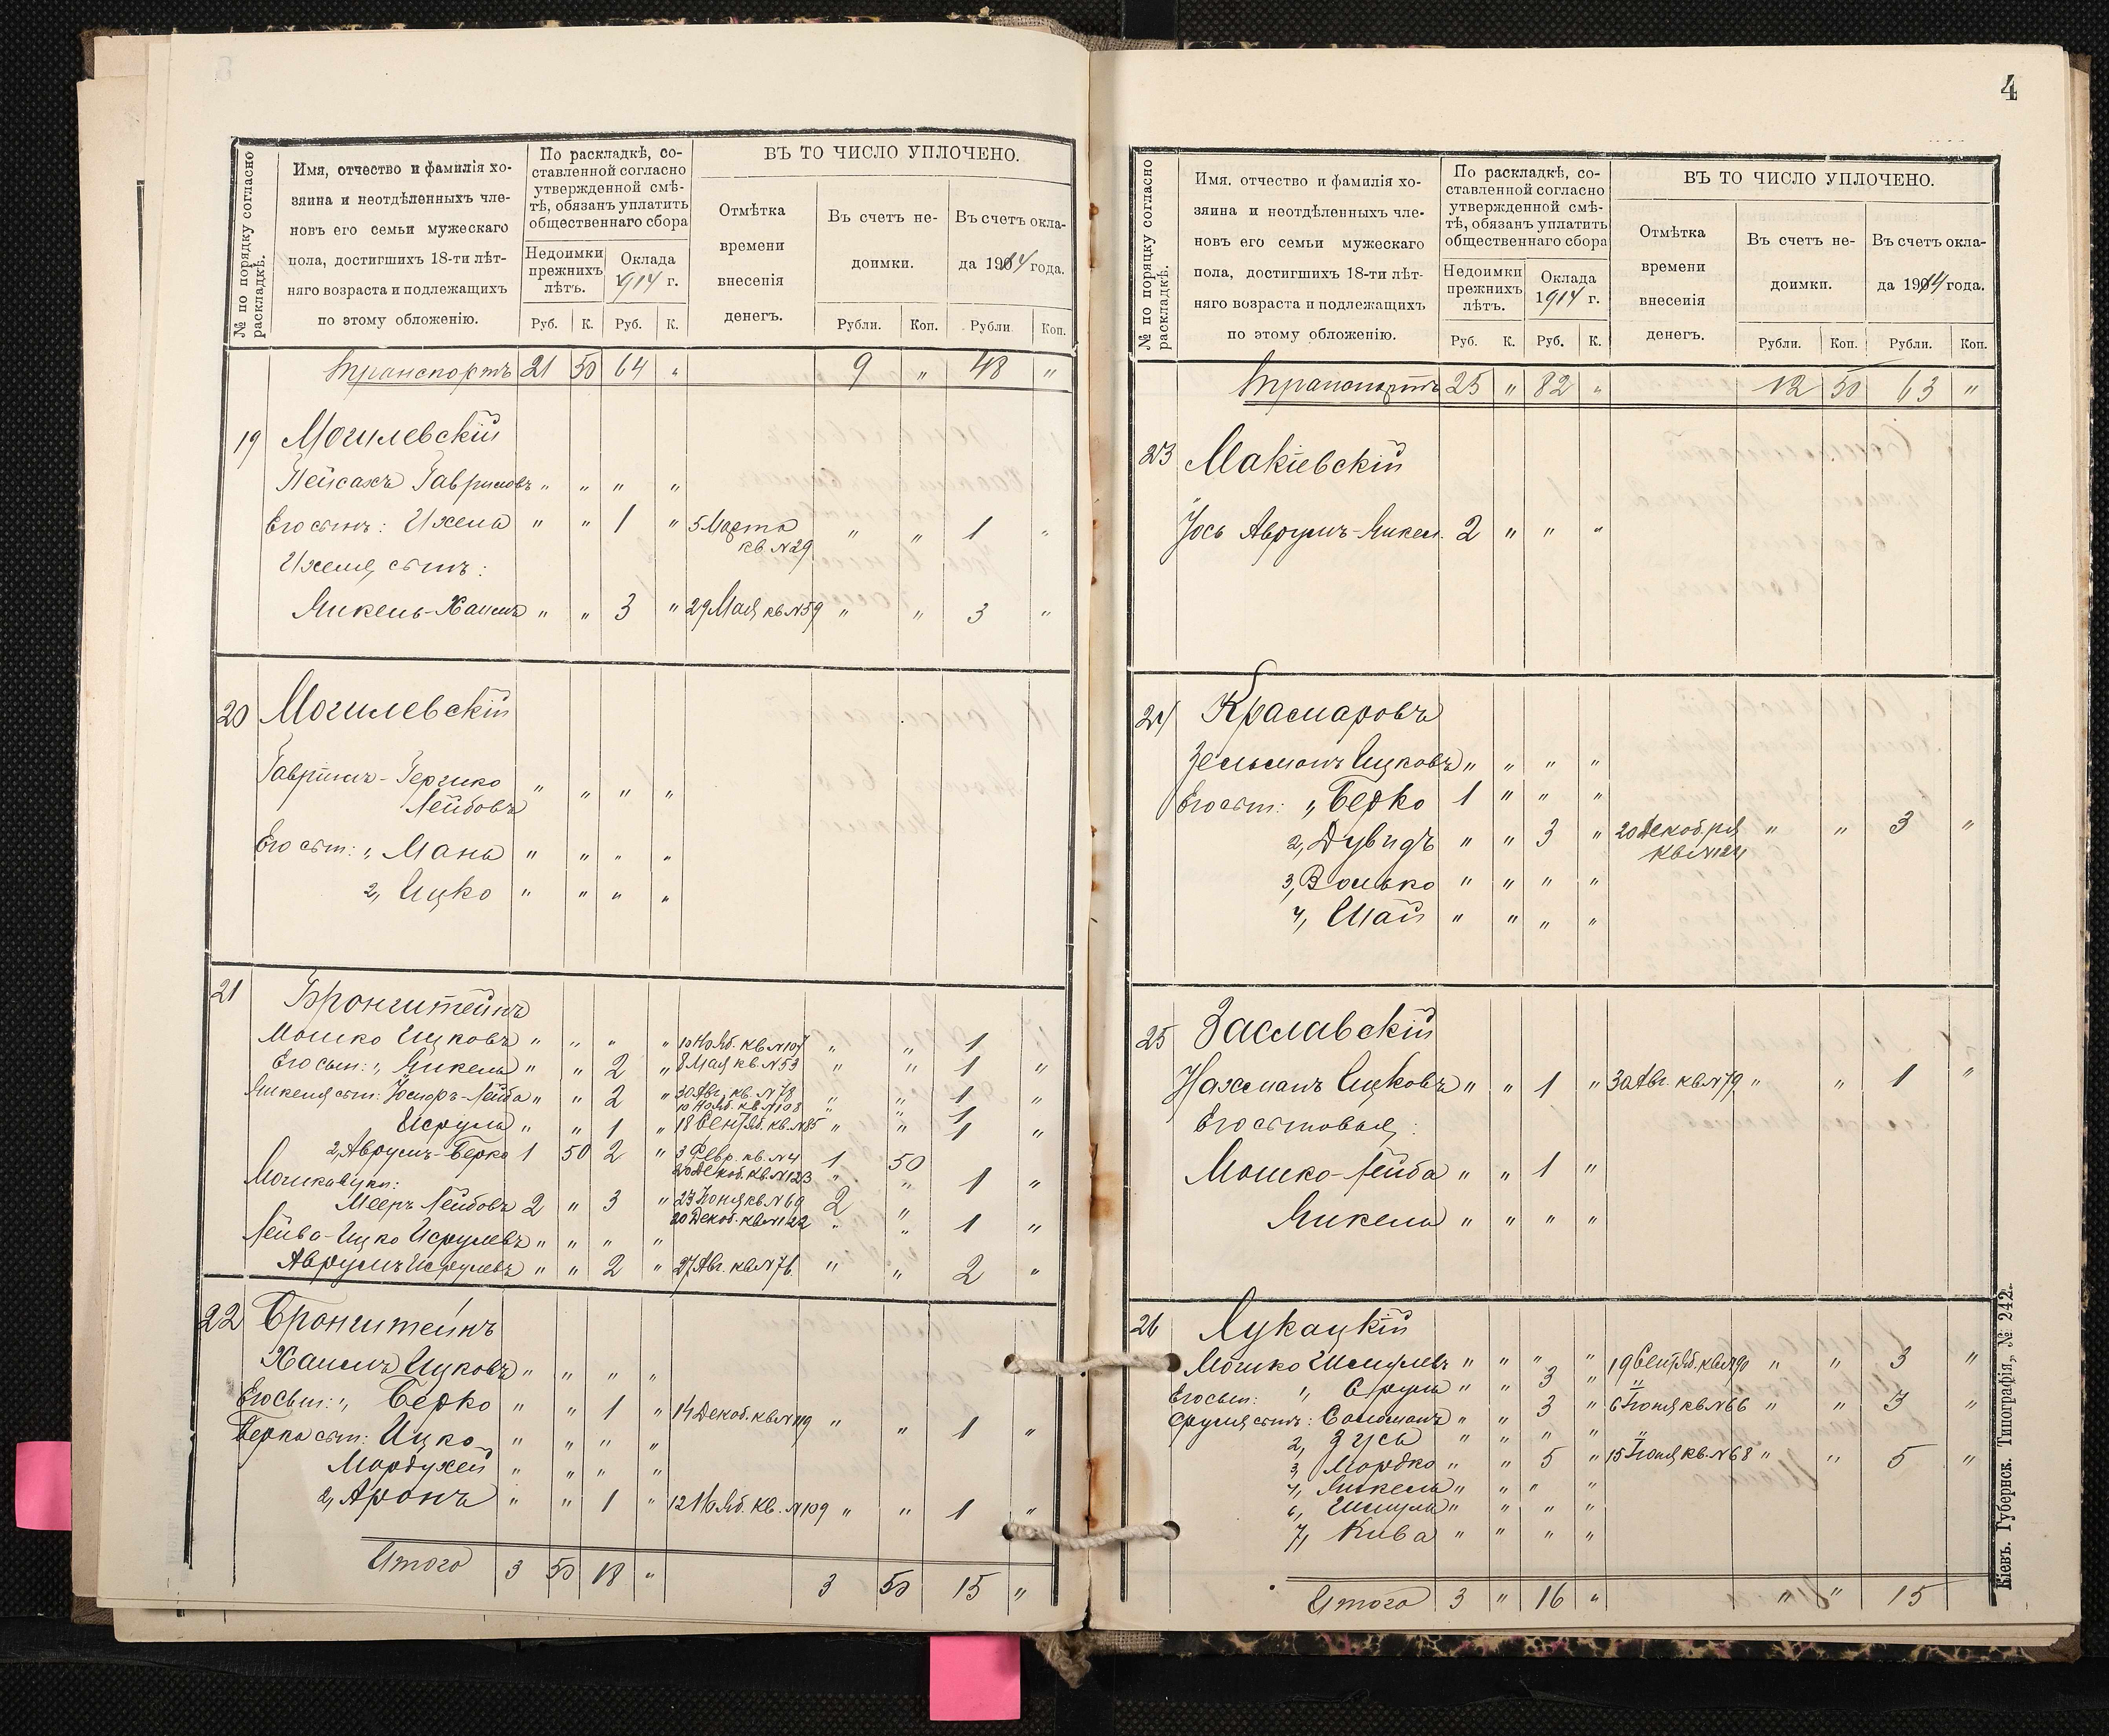 № по порядку согласно
раскладкѣ.
Имя, отчество и фамилія хо-
зяина и неотдѣленныхъ чле-
новъ его семьи мужескаго
пола, достигшихъ 18-ти лѣт-
няго возраста и подлежащихъ
по этому обложенію.
По раскладкѣ, со-
ставленной согласно
утвержденной смѣ-
тѣ, обязанъ уплатить
общественнаго сбора
Недоимки
прежнихъ
лѣтъ.
Оклада
1914 г.
Руб. К. Руб. К.
ВЪ ТО ЧИСЛО УПЛОЧЕНО.
Отмѣтка
времени
внесенія
денегъ.
Въ счетъ не-
доимки.
Въ счетъ окла-
да 1914 года.
Рубли. Коп. Рубли Коп.
Транспортъ 21 50 64 " 9 " 48 "
19 Могилевскій
Пейсахъ Гавриловъ " " " "
Его сынъ: Ихель " " 1 " 5 Марта " " 1 "
кв. №29
Ихеля сынъ:
Янкель-Хаимъ " " 3 " 29 Мая кв №59 " " 3 "
20 Могилевскій
Гавріилъ-Гершко " " " "
Лейбовъ
Его сын: 1, Мань " " " "
2, Ицко " " " "
21 Бронштейнъ
Мошко Ицковъ " " " " 10 Нояб. кв №107 " " 1
Его сын: 1, Янкель " " 2 " 8 Мая кв. №53 " " 1 "
Янкеля сын: -Лейба " " 2 " 30 Авг. кв. №78 " " 1 "
10 Нояб. кв №108 " " 1
Исруль " " 1 " 18 Сентяб. кв. №85 " " 1 "
2, Аврумъ-Берко 1 50 2 " 3 Февр. кв. №4 1 50
20 Декаб. кв. №123 " " 1 "
Мошка внуки:
Мееръ Лейбовъ 2 " 3 " 23 Іюня кв №69 2 "
20 Декаб. кв №122 " " 1 "
Лейба-Ицко Исрулевъ " " " "
Аврумъ Исрулевъ " " 2 " 27 Авг. кв №76. " " 2 "
22 Бронштейнъ
Хаимъ Ицковъ " " " "
Его сын: 1, Берко " " 1 " 14 Декаб. кв №119 " " 1 "
Берка сын: Ицко- " " " "
Мордухей " " " "
2, Аронъ " " 1 " 12 Нояб. кв. №109 " " 1 "
Итого 3 50 18 " 3 50 15 "
4
№ по порядку согласно
раскладкѣ.
Имя. отчество и фамилія хо-
зяина и неотдѣленныхъ чле-
новъ его семьи мужескаго
пола, достигшихъ 18-ти лѣт-
няго возраста и подлежащихъ
по этому обложенію.
По раскладкѣ, со-
ставленной согласно
утвержденной смѣ-
тѣ, обязанъ уплатить
общественнаго сбора
Недоимки
прежнихъ
лѣтъ.
Оклада
1914 г.
Руб. К. Руб. К.
ВЪ ТО ЧИСЛО УПЛОЧЕНО.
Отмѣтка
времени
внесенія
денегъ.
Въ счетъ не-
доимки.
Въ счетъ окла-
да 1914 года.
Рубли. Коп. Рубли. Коп.
Транспортъ 25 " 82 " 12 50 63 "
23 Макіевскій
Іось Аврумъ-Янкел. 2 " " "
24 Красмаровъ
Зельманъ Ицковъ " " " "
Его сын: 1, Берко 1 " " "
2, Дувидъ " " 3 " 20 Декаб. " " 3 "
кв №124
3, Волько " " " "
4, Шай " " " "
25 Заславскій
Нахманъ Ицковъ " " 1 " 30 Авг. кв №79 " " 1 "
Его сыновья:
Мошко-Лейба " " 1 "
Янкель " " " "
26 Лукацкій
Мошко Шмулевъ " " " " 19 Сентяб. кв №90 " " 3 "
Его сын: 1, Сруль " " 3 "
Сруля сынъ: " " 3 " 6 Іюня кв №66 " " 3 "
2, Зусь " " " "
3, Мордко " " 5 " 15 Іюня кв. №68 " " 5 "
4, Янкель " " " "
6, Шмуль " " " "
7, Кива " " " "
Итого 3 " 16 " " " 15
Кіевъ. Губернск. Типографія, № 242.